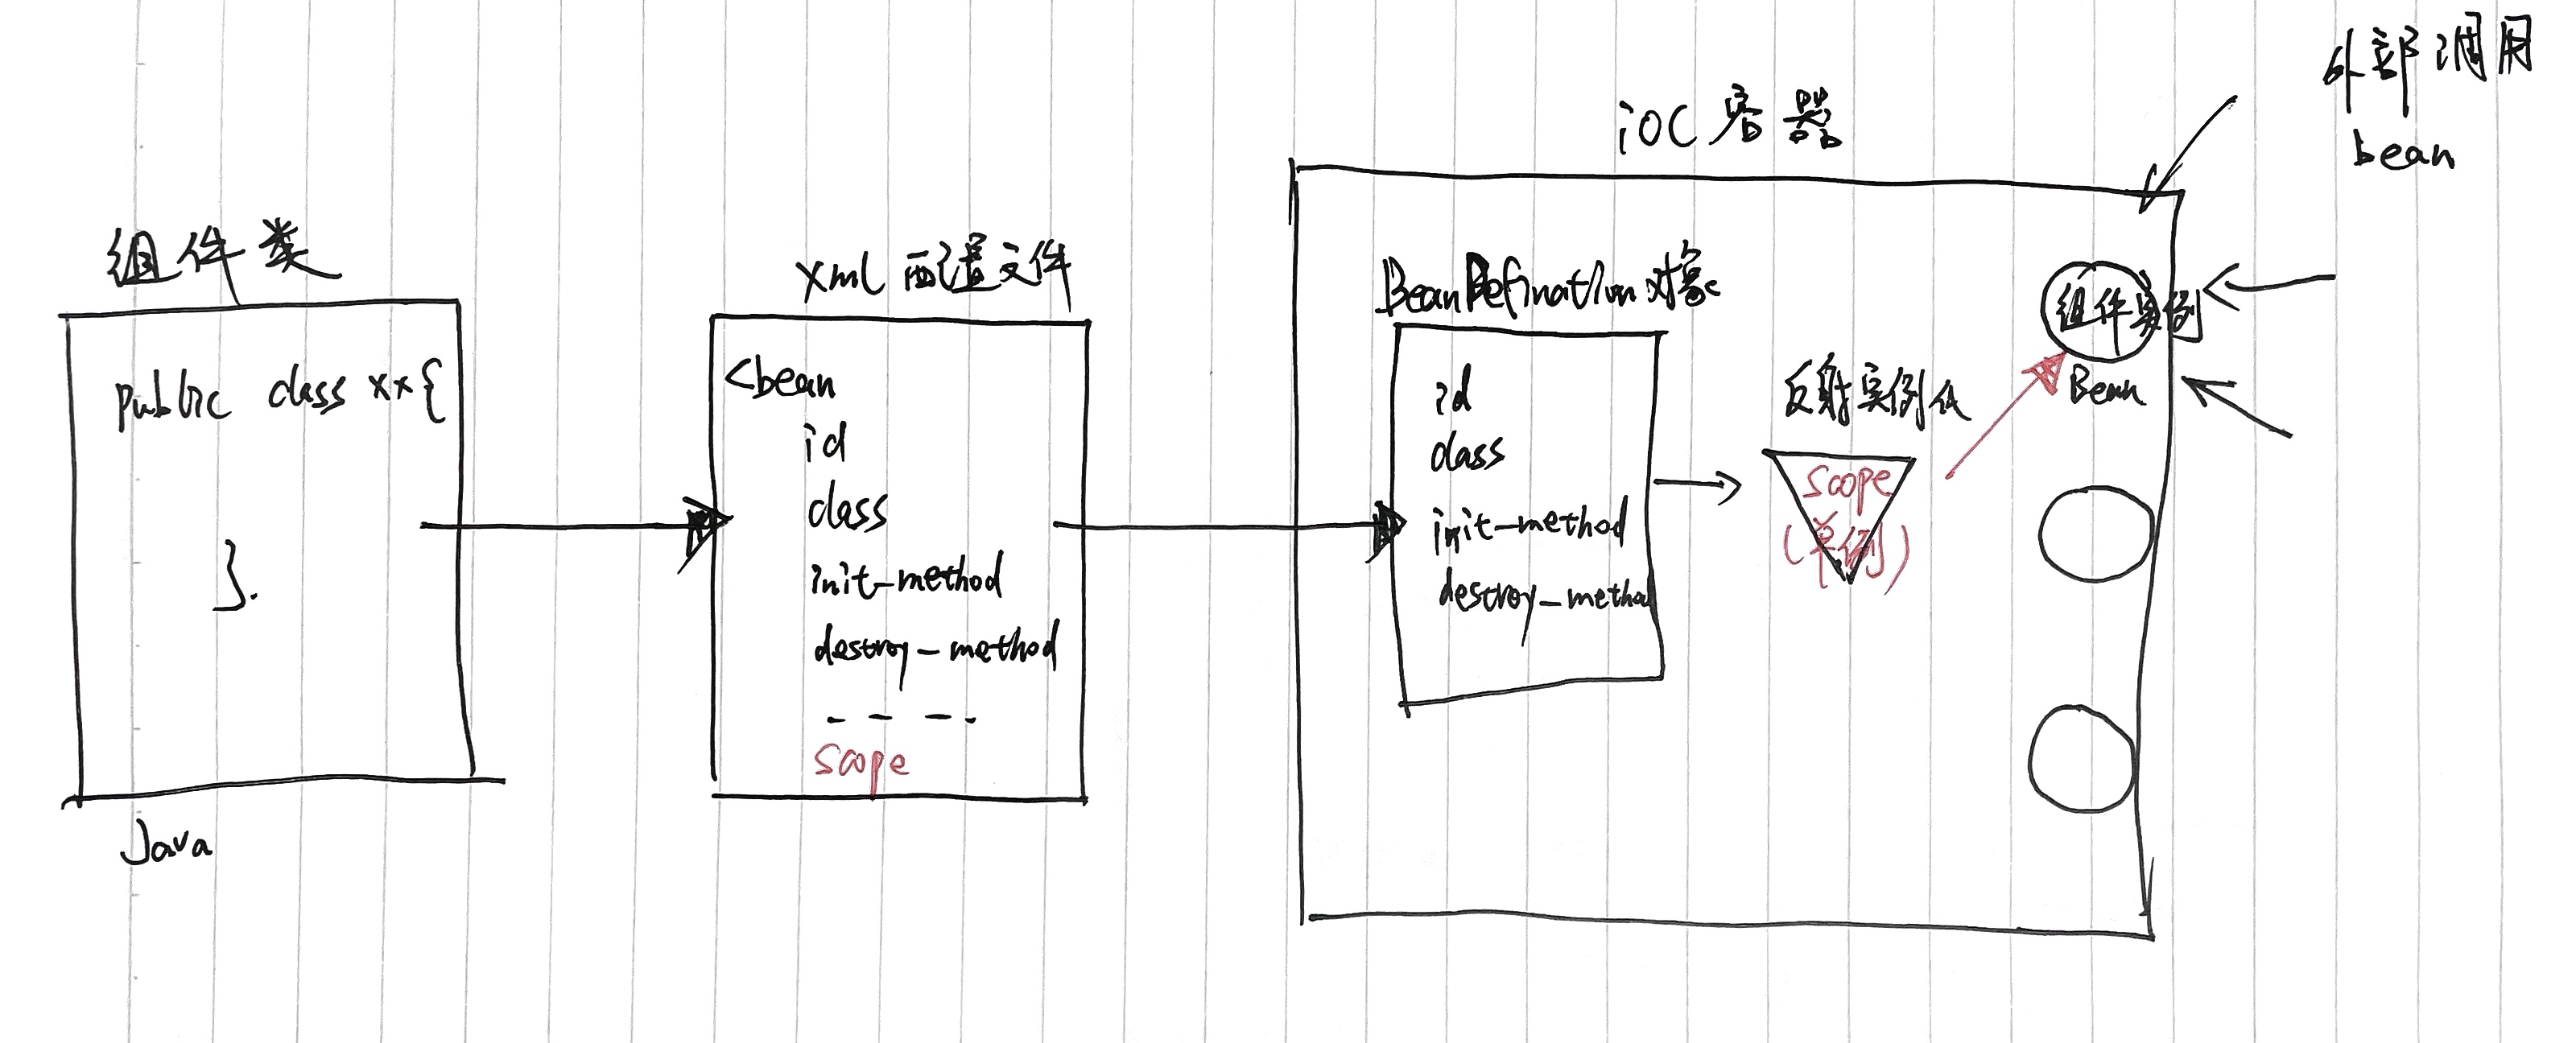 组件类
public class xx{
}.
Java
xml 配置文件
<bean
id
class
init-method
destroy-method
----
scope
ioc 容器
BeanDefination对象
id
class
init-method
destroy-method
反射实例化
scope
(单例)
组件实例
Bean
外部调用
bean